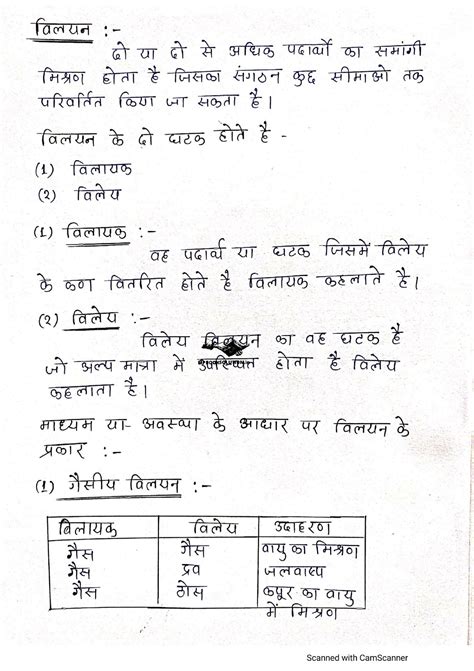 विलयन :-
दो या दो से अधिक पदार्थो का समांगी
मिश्रण होता है जिसका संगठन कुछ सीमाओ तक
परिवर्तित किया जा सकता है।
विलयन के दो घटक होते है -
(1) विलायक
(2) विलेय
(1) विलायक :-
वह पदार्थ या घटक जिसमें विलेय
के कण वितरित होते है विलायक कहलाते है।
(2) विलेय :-
विलेय विलयन का वह घटक है
जो अल्प मात्रा में उपस्थित होता है विलेय
कहलाता है।
माध्यम या- अवस्था के आधार पर विलयन के
प्रकार :-
(1) गैसीय विलयन :-
विलायक विलेय उदाहरण
गैस गैस वायु का मिश्रण
गैस द्रव जलवाष्प
गैस ठोस कपूर का वायु
में मिश्रण
Scanned with CamScanner